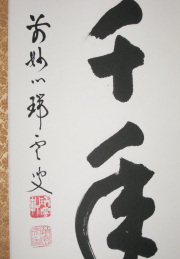 千年
前妙心瑞雲叟